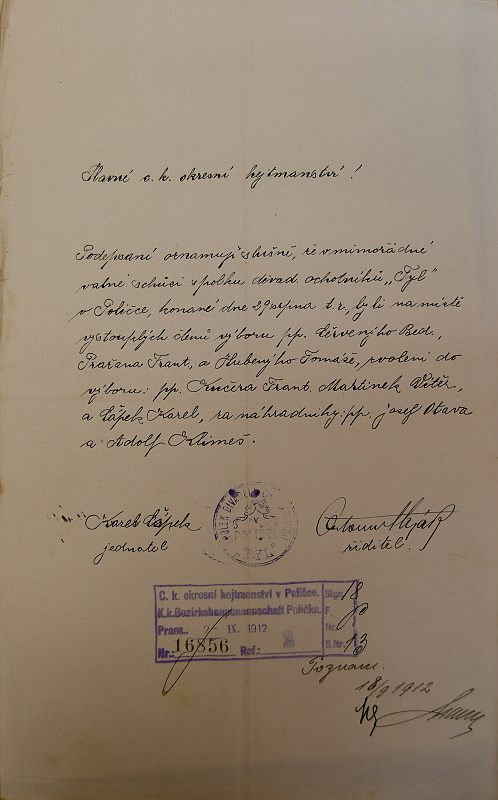 Slavné c. k. okresní hejtmanství!
Podepsaní oznamují slušně, že v mimořádné
valné schůzi spolku divad. ochotníků „Tyl"
v Poličce, konané dne 29 srpna t. r., byli na místě
vystouplých členů výboru pp. Červenýho Bed.,
Pražana Frant, a Hubenýho Tomáše, zvoleni do
výboru: pp. Kučera Frant. Martinek Vítěz.,
a Čápek Karel, za náhradníky: pp. Josef Otava
a Adolf Klimeš.
Karel Čápek
jednatel
Antonín
řiditel.
"TYL"
C. k. okresní hejtmanství v Poličce.
K.k. Bezirkshauptmannschaft Polička.
Praes. 2- IX. 1912
Nr.: 16856 Ref.: 2
Sign. 18
F.
Nr.
S.Nr. 13
Poznam.
18/9 1912